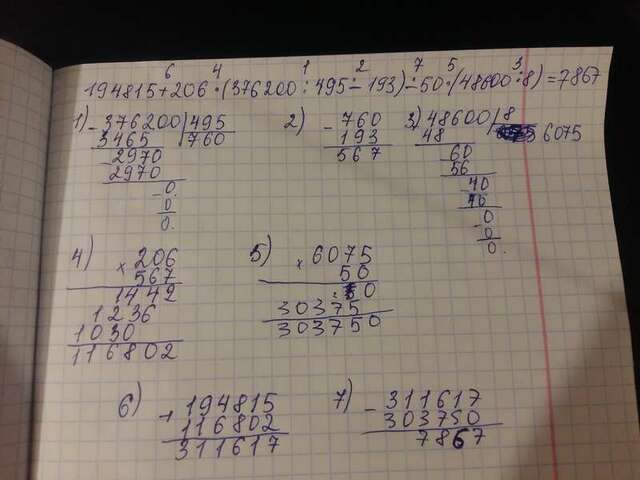 6 4 1 2 7 5 3
194815+206·(376200:495-193)-50·(48600:8)=7867
1) -376200 495
3465 760
-2970
2970
-0
0
0.
2) -760
193
567
3) 48600 8
48 6075
60
56
-40
40
-0
0
0.
4) ×206
567
1442
1236
1030
116802
5) ×6075
50
0
30375
303750
6) +194815
116802
311617
7) -311617
303750
7867